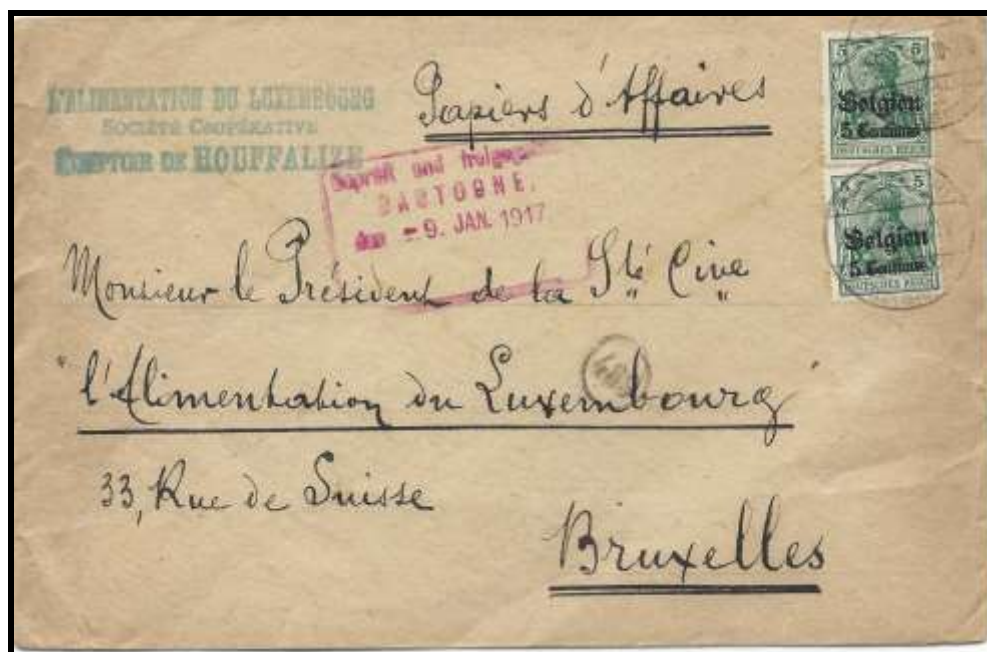 L'ALIMENTATION DU LUXEMBOURG
SOCIÉTÉ COOPÉRATIVE
COMPTOIR DE HOUFFALIZE
Papiers d'Affaires
Geprüft und
BASTOGNE,
den - 9. JAN. 1917
5 5
Belgien
5 Centimes
DEUTSCHES REICH
5 5
Belgien
5 Centimes
DEUTSCHES REICH
Monsieur le Président de la Sté Cive
"l'Alimentation du Luxembourg"
33, Rue de Suisse
Bruxelles